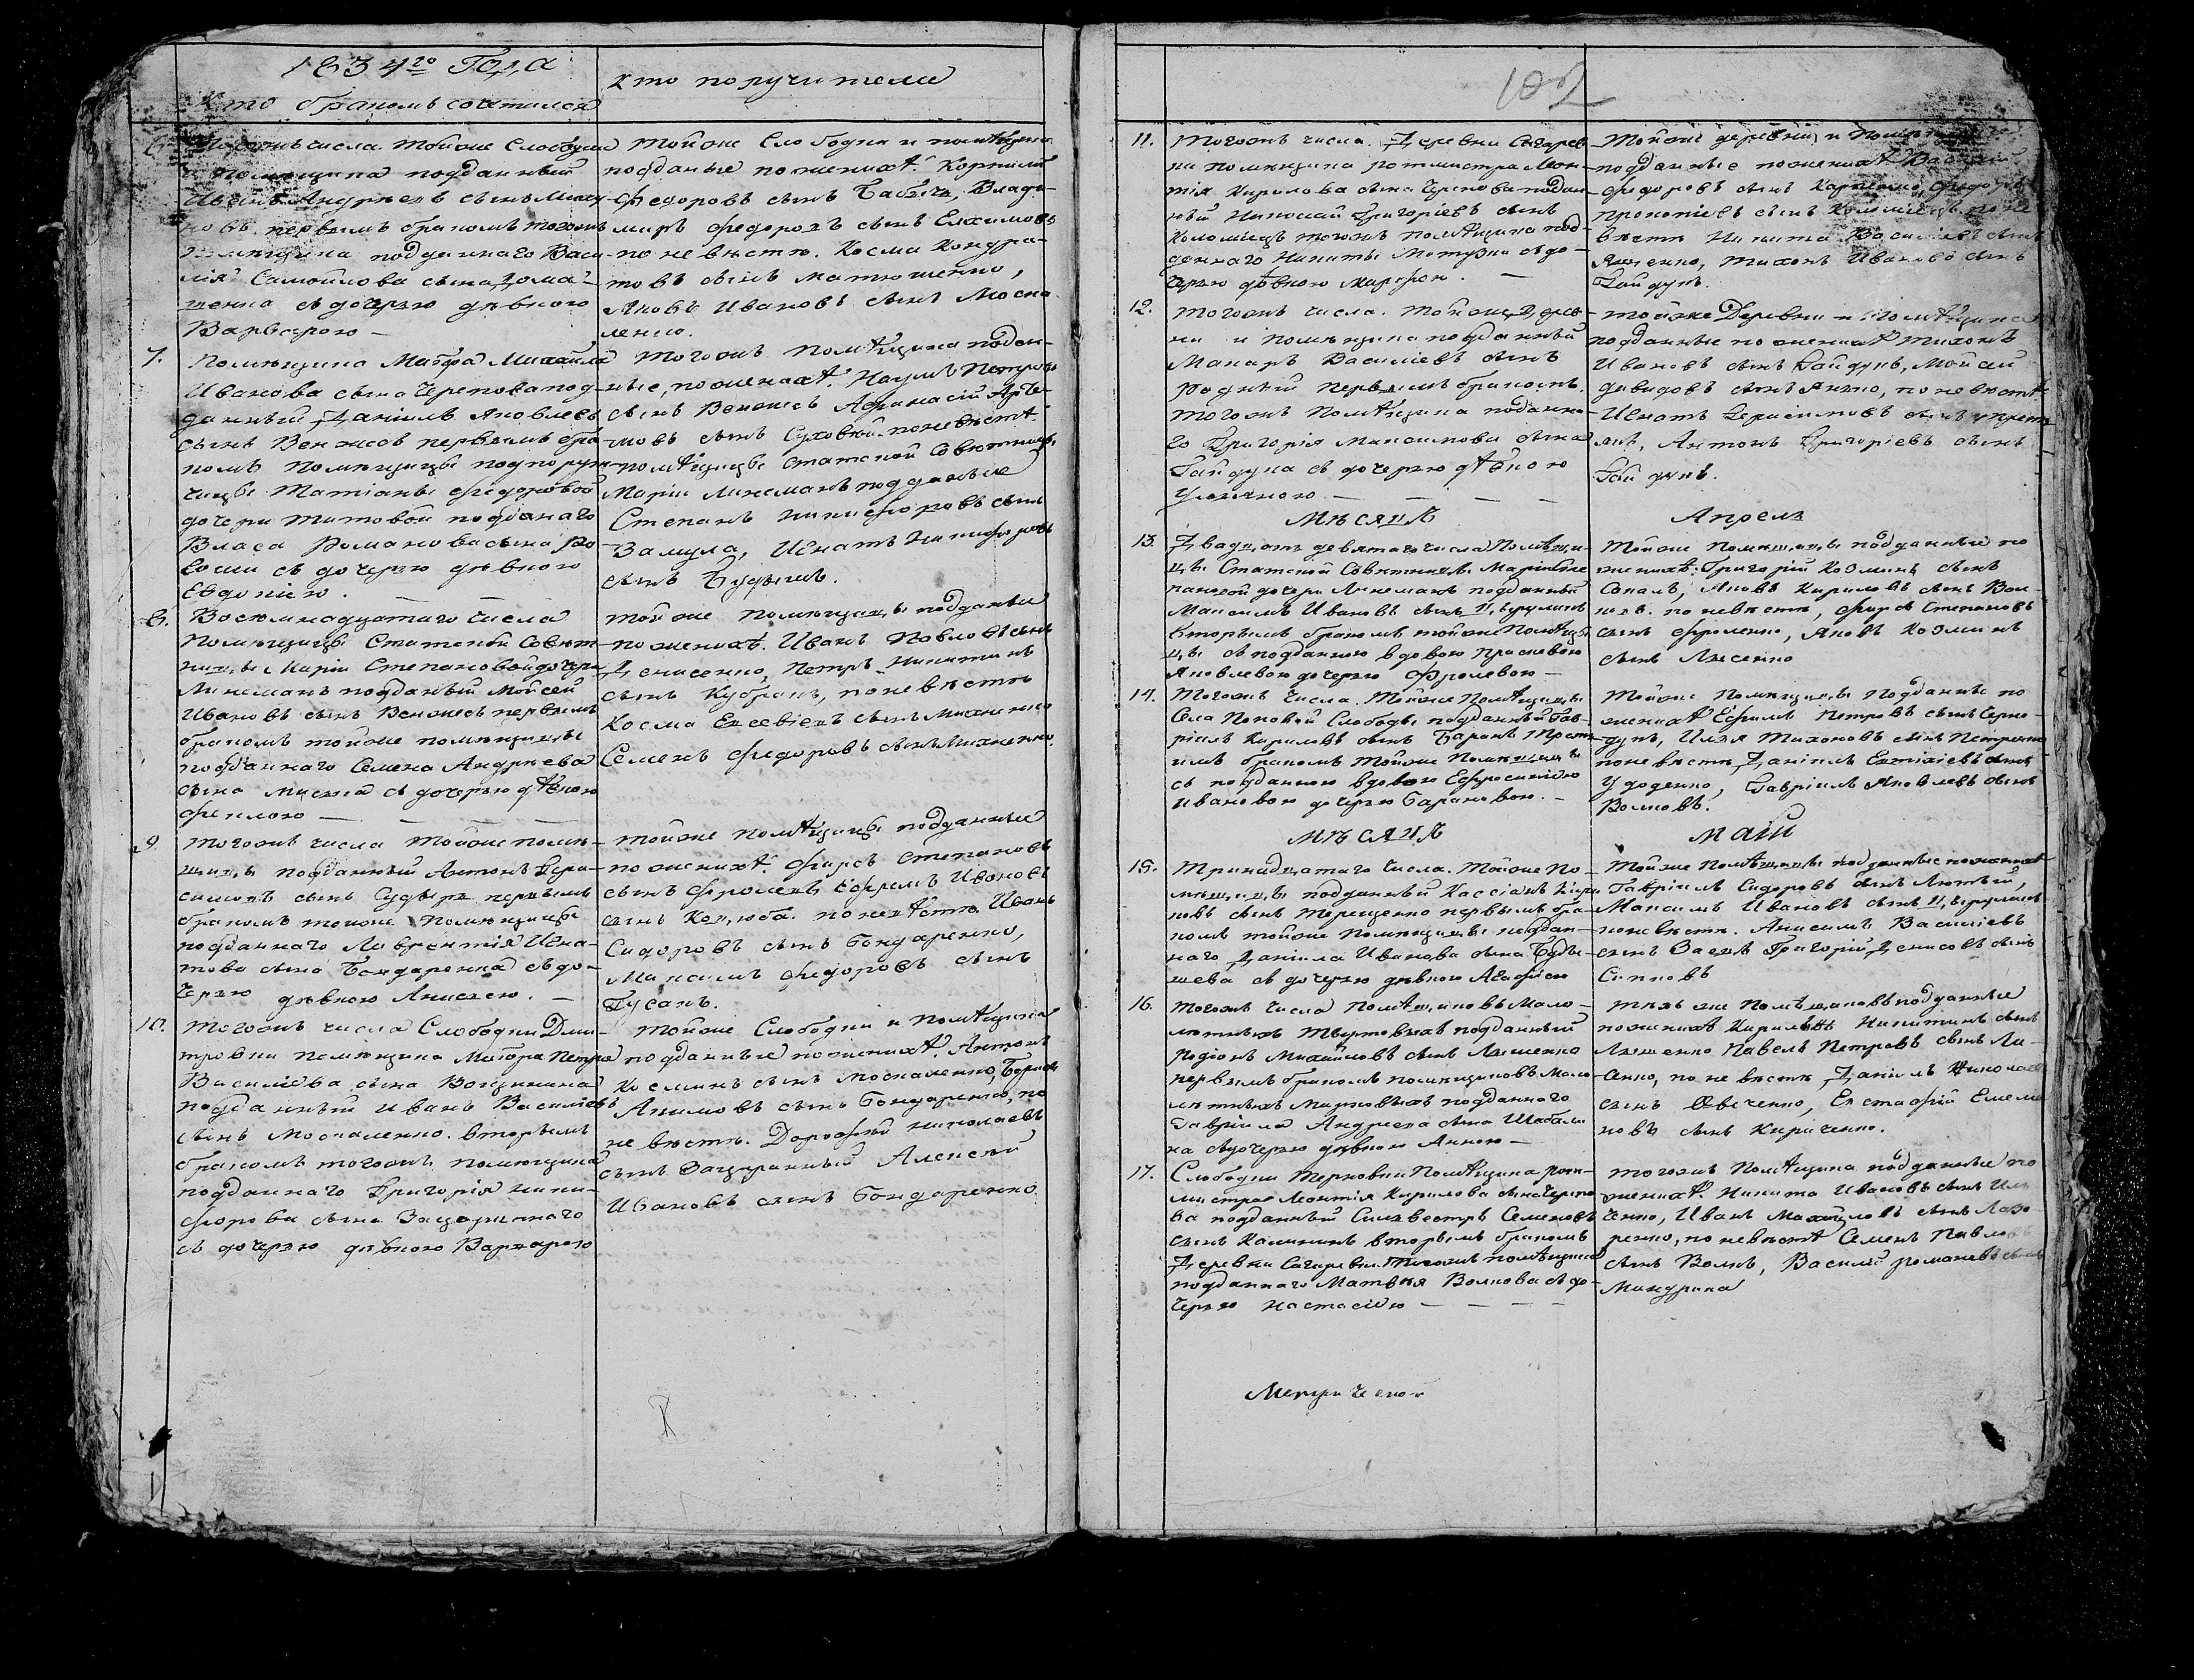 1834го Года
Кто бракомъ сочетался
кто поручители
6.
Тогожъ числа тойже Слободы
и помѣщика подданный
Андреевъ сынъ
первымъ бракомъ тогожъ
помѣщика подданнаго Васи-
лія Самойлова сына Дома-
шенка съ дочерью дѣвкою
Варварою —
Тойже Слободки и помѣщика
подданые по женихѣ: Корнилій
Федоровъ сынъ Бабичъ, Влади-
миръ Федоровъ сынъ
по невѣстѣ. Косма Кондра-
товъ сынъ Матюшенко,
Яковъ Ивановъ сынъ Моска-
ленко.
7.
Помѣщика Маіора Михайла
Иванова сына Черепова под-
данный Даніилъ Яковлевъ
сынъ Венжесъ первымъ бра-
комъ помѣщицы подпору-
чицы Татіаны Федоровой
дочери Титовой подданаго
Власа Романова сына
съ дочерью дѣвкою
Евдокіею. — —
Тогожъ помѣщика поддан-
ные, по женихѣ: Наумъ Петровъ
сынъ Венжесъ Афанасій
сынъ Суховый. по невѣстѣ
помѣщицы Статской Совѣтницы
Маріи Линеманъ подданые
Степанъ Никифоровъ сынъ
Замула, Игнатъ Никифоровъ
сынъ
8.
Восемнадцатаго числа
Помѣщицы Статской Совѣт-
ницы Маріи Степановой дочери
Линеманъ подданый Мойсей
Ивановъ сынъ Венжесъ первымъ
бракомъ тойже помѣщицы
подданнаго Семена Андреева
сына съ дочерью дѣвкою
Феклою — — —
тойже помѣщицы подданые
по женихѣ. Иванъ Павловъ сынъ
Денисенко, Петръ Никитинъ
сынъ по невѣстѣ
Косма Евсевіевъ сынъ Михненко
Семенъ Федоровъ сынъ Михненко.
9.
тогожъ числа тойже помѣ-
щицы подданный Антонъ Гера-
симовъ сынъ первымъ
бракомъ тойже Помѣщицы
подданнаго Лаврентія Игна-
това сына Бондаренка съ до-
черью дѣвкою Анисіею. —
тойже помѣщицы подданые
по женихѣ: Фирсъ Степановъ
сынъ Ефремъ Ивановъ
сынъ Коцюба. по невѣстѣ Иванъ
Сидоровъ сынъ Бондаренко,
Максимъ Федоровъ сынъ
Гусакъ.
10.
тогожъ числа Слободки Дми-
тровки помѣщика Маіора Петра
Василіева сына
подданный Иванъ Василіевъ
сынъ Москаленко. вторымъ
бракомъ тогожъ помѣщика
подданнаго Григорія Ники-
форова сына
съ дочерью дѣвкою Варварою
тойже Слободки и помѣщика
подданые по женихѣ. Антонъ
Косминъ сынъ Москаленко, Борисъ
Акимовъ сынъ Бондаренко, по
невѣстѣ. Дорофей Николаевъ
сынъ Алексѣй
Ивановъ сынъ Бондаренко
102
11.
Тогожъ числа. Деревни Сагарев-
ки помѣщика ротмистра Леон-
тія Кирилова сына Черепова поддан-
ный Николай Григоріевъ сынъ
Коломіецъ тогожъ помѣщика под-
даннаго Никиты съ до-
черью дѣвкою Марфою. —
Тойже деревни и Помѣщика
подданные по женихѣ Василій
Федоровъ сынъ Карпенко, Федоръ
Прокопіевъ сынъ Коломіецъ по не-
вѣстѣ Никита Василіевъ сынъ
Яценко, Тихонъ Ивановъ сынъ
Гайдукъ.
12.
тогожъ числа. тойже Дерев-
ни и помѣщика подданный
Макаръ Василіевъ сынъ
первымъ бракомъ.
тогожъ Помѣщика поданна-
го Григорія Максимова сына
Гайдука съ дочерью дѣвкою
Улитою — — —
тойже Деревни и Помѣщика
подданые по женихѣ Тихонъ
Ивановъ сынъ Гайдукъ, Мойсей
Давидовъ сынъ по невѣстѣ
Игнатъ Герасимовъ сынъ
Антонъ Григоріевъ сынъ
Гайдукъ.
Мѣсяцъ
Апрель
13.
Двадцать девятаго числа Помѣщи-
цы Статской Совѣтницы Маріи Сте-
пановой дочери Линеманъ подданый
Максимъ Ивановъ сынъ
вторымъ бракомъ тойже Помѣщи-
цы съ подданною вдовою Прасковею
Яковлевою дочерью Фролевою —
Тойже Помѣщицы подданные по
женихѣ: Григорій Козминъ сынъ
Соколъ, Яковъ Кириловъ сынъ Вол-
ковъ. по невѣстѣ, Фирсъ Степановъ
сынъ Фроленко, Яковъ Козминъ
сынъ Лысенко
14.
Тогожъ числа. Тойже Помѣщицы
Села Поповой Слободы подданный Гав-
ріилъ Кириловъ сынъ Баранъ
бракомъ тойже Помѣщицы
съ подданною вдовою Ефросиніею
Ивановою дочерью Барановою. —
Тойже Помѣщицы подданые по
женихѣ Ефимъ Петровъ сынъ
Илья Тихоновъ сынъ Петренко
по невѣстѣ, Даніилъ сынъ
Удоденко, Гавріилъ Яковлевъ сынъ
Волковъ.
Мѣсяцъ
Май
15.
Тринадцатаго числа. Тойже По-
мѣщицы подданный Кассіанъ
сынъ Терещенко первымъ бра-
комъ тойже помѣщицы поддан-
наго Даніила Иванова сына Буды-
шева съ дочерью дѣвкою Агафіею
Тойже Помѣщицы подданые по женихѣ
Гавріилъ Сидоровъ сынъ Лютый,
Максимъ Ивановъ сынъ
по невѣстѣ. Анисимъ Василіевъ
сынъ Заецъ Григорій Денисовъ сынъ
16.
тогожъ числа Помѣщиковъ Мало-
лѣтныхъ подданный
Родіонъ Михайловъ сынъ Ляшенко
первымъ бракомъ помѣщиковъ мало-
лѣтныхъ подданнаго
Гавріила Андреева сына Шабали-
на съ дочерью дѣвкою Анною —
тѣхъ же Помѣщиковъ подданые
по женихѣ Кирилъ Никитинъ сынъ
Ляшенко Павелъ Петровъ сынъ
по невѣстѣ Даніилъ Николаевъ
сынъ Овеченко, Евстафій Емелья-
новъ сынъ Кириченко.
17.
Слободки Терновки Помѣщика рот-
мистра Леонтія Кирилова сына Черепо-
ва подданный Силвестръ Семеновъ
сынъ Калининъ вторымъ бракомъ
Деревни Сагаревки. Тогожъ помѣщика
подданнаго Матвѣя Волкова съ до-
черью Настасіею — — — —
тогожъ Помѣщика подданые по
женихѣ. Никита Ивановъ сынъ
Иванъ Михайловъ сынъ Лаза-
ренко, по невѣстѣ Семенъ Павловъ
сынъ Волкъ, Василій Романовъ сынъ
Мандрика